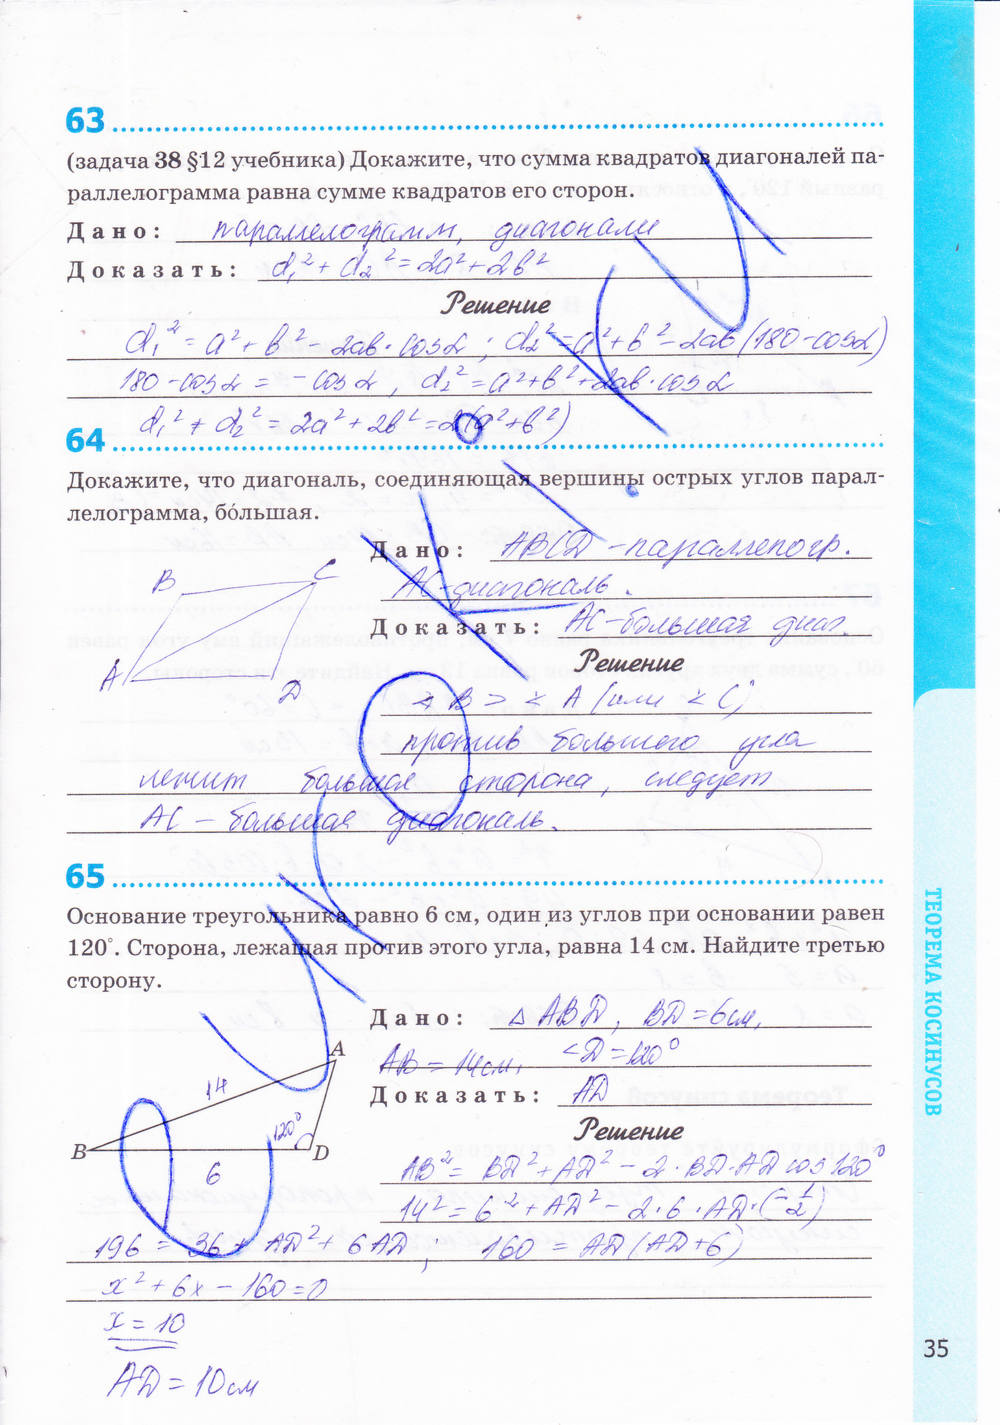 63
(задача 38 §12 учебника) Докажите, что сумма квадратов диагоналей па-
раллелограмма равна сумме квадратов его сторон.
Дано: параллелограмм, диагонали
Доказать: d₁² + d₂² = 2a² + 2b²
Решение
d₁² = a² + b² - 2ab · cosα ; d₂² = a² + b² - 2ab (180 - cosα)
180 - cosα = - cosα , d₂² = a² + b² + 2ab · cosα
d₁² + d₂² = 2a² + 2b² = 2(a² + b²)
64
Докажите, что диагональ, соединяющая вершины острых углов парал-
лелограмма, бóльшая.
Дано: ABCD - параллелогр.
AC - диагональ.
Доказать: AC - большая диаг
B C
A D
Решение
∢ B > ∢ A (или ∢ C)
против большого угла
лежит большая сторона, следует
AC - большая диагональ.
65
Основание треугольника равно 6 см, один из углов при основании равен
120°. Сторона, лежащая против этого угла, равна 14 см. Найдите третью
сторону.
Дано: △ ABD, BD = 6см,
AB = 14см, ∠D = 120°
Доказать: AD
A
14
120°
B D
6
Решение
AB² = BD² + AD² - 2 · BD · AD cos 120°
14² = 6² + AD² - 2 · 6 · AD · (-1/2)
196 = 36 + AD² + 6AD , 160 = AD (AD + 6)
x² + 6x - 160 = 0
x = 10
AD = 10 см
ТЕОРЕМА КОСИНУСОВ
35